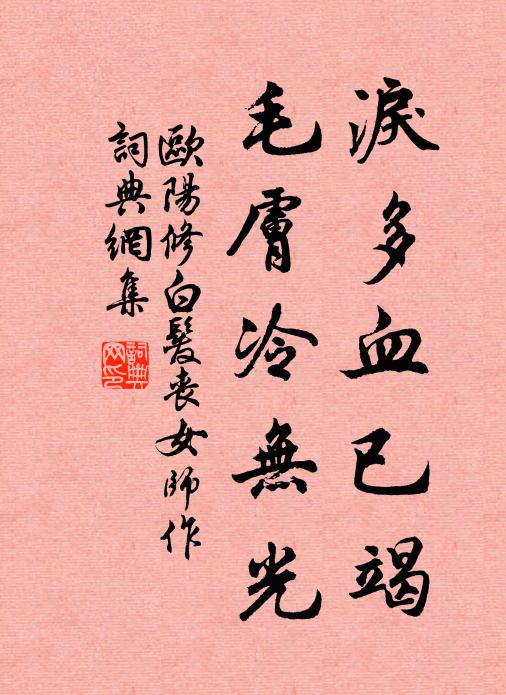 淚多血已竭
毛膚冷無光
歐陽修白髮喪女師作
詞典網集
詞典
网印